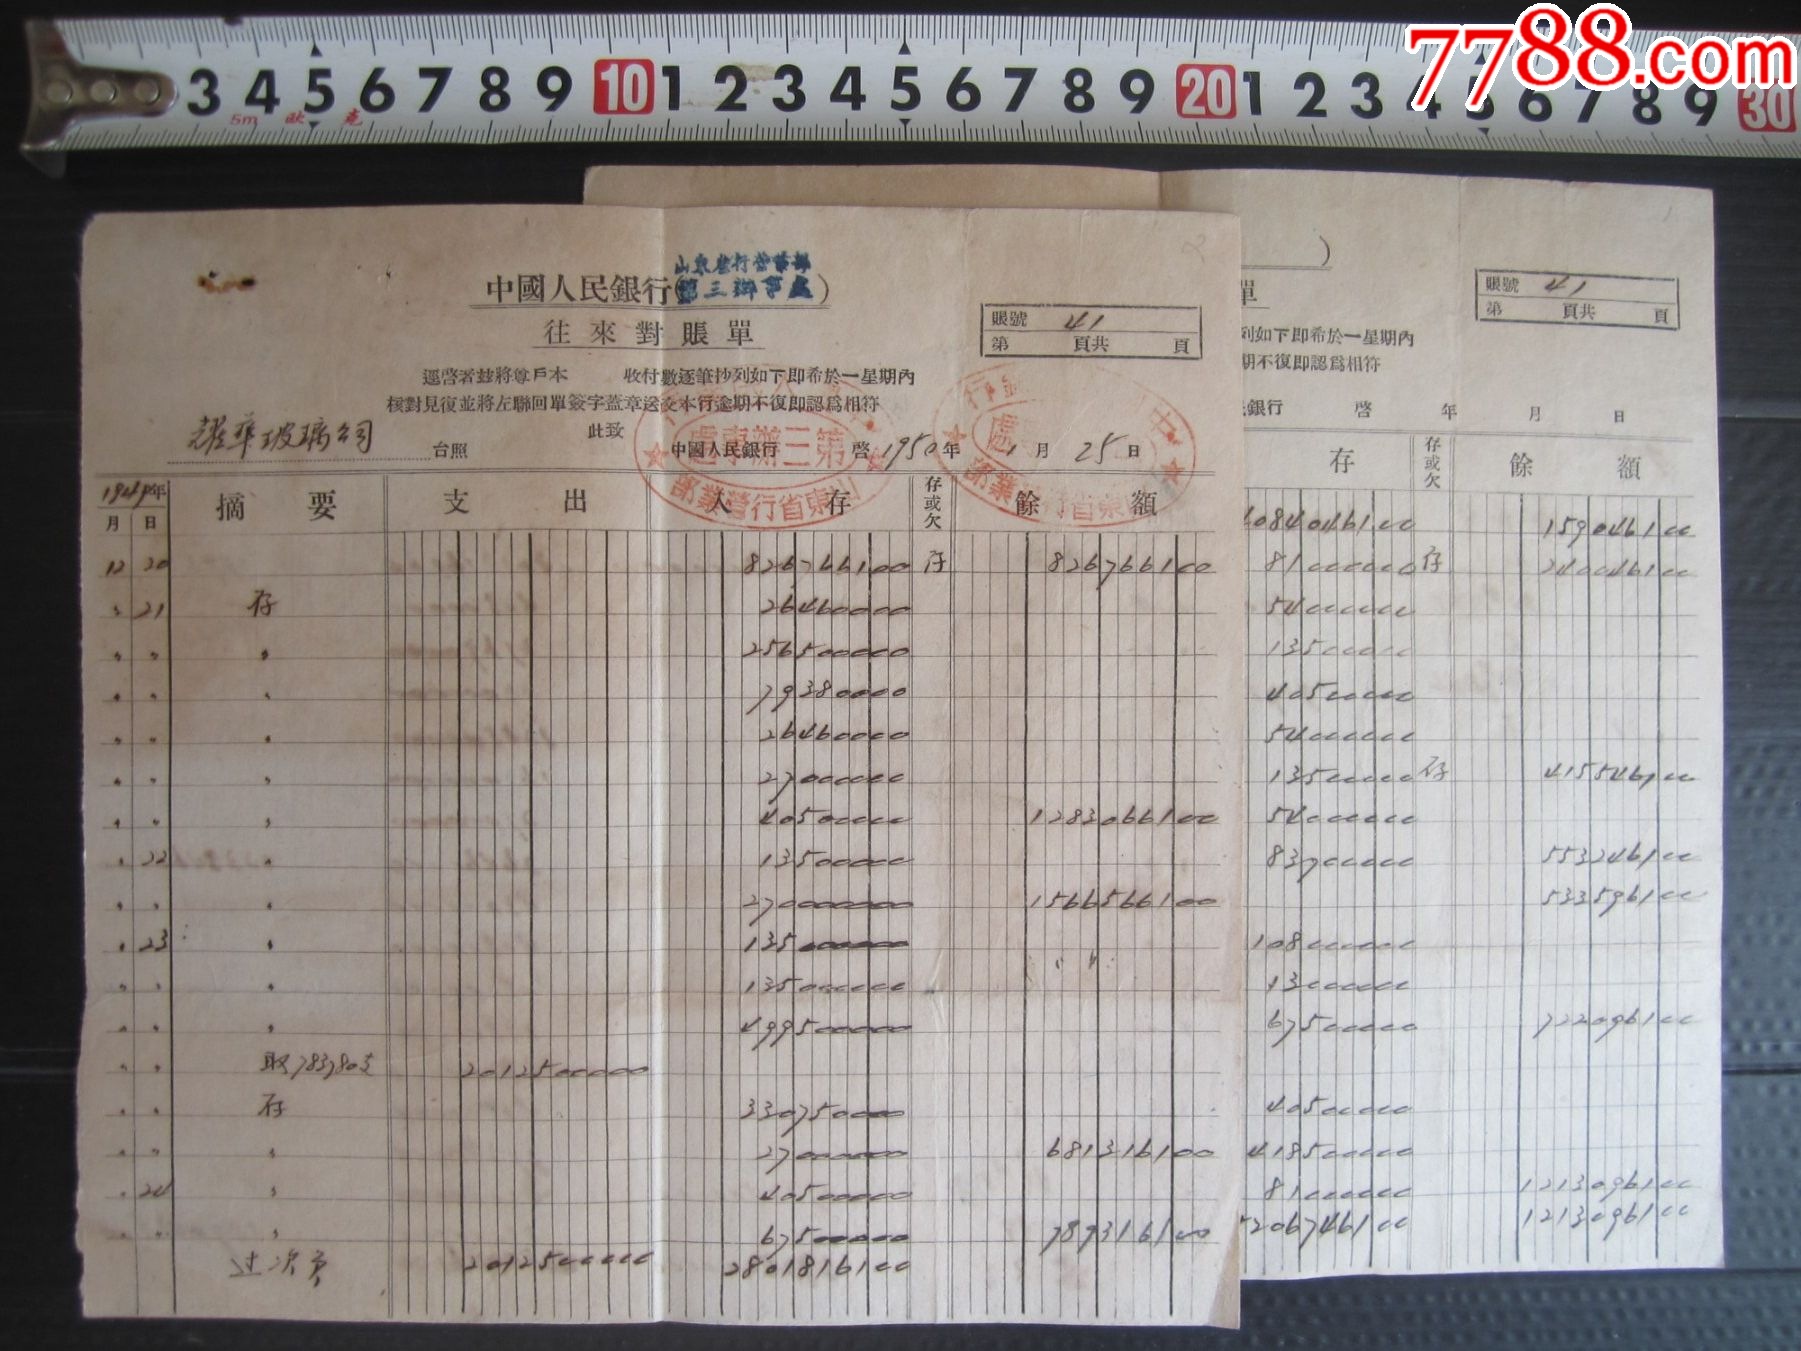 7788.com
3 4 5 6 7 8 9 10 1 2 3 4 5 6 7 8 9 20 1 2 3 4 5 6 7 8 9 30
5m
山東省行營業部
中國人民銀行(第三辦事處)
往來對賬單
賬號 41
第 頁共 頁
逕啓者玆將尊戶本 收付數逐筆抄列如下即希於一星期內
核對見復並將左聯回單簽字蓋章送交本行逾期不復即認爲相符
此致
耀華玻璃公司 台照
中國人民銀行 啓 1950年 1月 25日
第三辦事處
山東省行營業部
1949年 摘要 支出 入存 存或欠 餘額
月 日
12 20 826766100 存 826766100
21 存 26460000
256500000
79380000
26460000
27000000
40500000 1283066100
22 13500000
270000000 1566566100
23 135000000
13500000
499500000
取783780支 2012500000
存 33075000
27000000 681316100
24 40500000
67500000 789316100
过次页 2012500000 2801816100
單
賬號 41
第 頁共 頁
列如下即希於一星期內
期不復即認爲相符
銀行 啓 年 月 日
存 存或欠 餘額
159046100
81000000 存 240046100
54000000
13500000
40500000
54000000
13500000 存 415546100
54000000
83700000 553246100
533596100
108000000
13000000
67500000 722096100
40500000
418500000
81000000 1213096100
1213096100